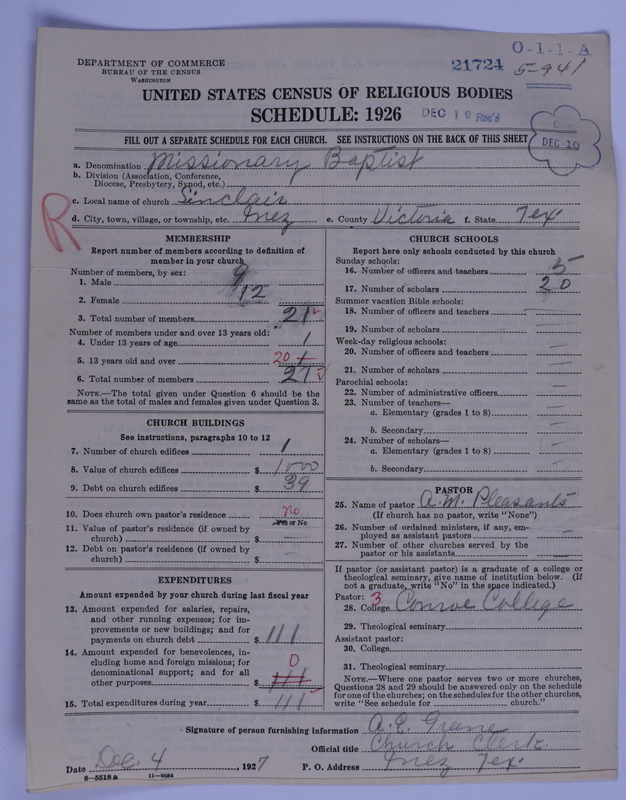 DEPARTMENT OF COMMERCE
BUREAU OF THE CENSUS
WASHINGTON
21724
O-1-1-A
5-941
UNITED STATES CENSUS OF RELIGIOUS BODIES
SCHEDULE: 1926
DEC 10 Rec'd
FILL OUT A SEPARATE SCHEDULE FOR EACH CHURCH. SEE INSTRUCTIONS ON THE BACK OF THIS SHEET
DEC 10
a. Denomination Missionary Baptist
b. Division (Association, Conference,
Diocese, Presbytery, Synod, etc.)
c. Local name of church Sinclair
d. City, town, village, or township, etc. Inez e. County Victoria f. State Tex
R
MEMBERSHIP
Report number of members according to definition of
member in your church
Number of members, by sex:
1. Male 9
2. Female 12
3. Total number of members 21
Number of members under and over 13 years old:
4. Under 13 years of age 1
5. 13 years old and over 20 1
6. Total number of members 21
NOTE.—The total given under Question 6 should be the
same as the total of males and females given under Question 3.
CHURCH BUILDINGS
See instructions, paragraphs 10 to 12
7. Number of church edifices 1
8. Value of church edifices $ 1000
9. Debt on church edifices $ 39
10. Does church own pastor's residence no
Yes or No
11. Value of pastor's residence (if owned by
church) $ —
12. Debt on pastor's residence (if owned by
church) $ —
EXPENDITURES
Amount expended by your church during last fiscal year
13. Amount expended for salaries, repairs,
and other running expenses; for im-
provements or new buildings; and for
payments on church debt $ 111
14. Amount expended for benevolences, in-
cluding home and foreign missions; for
denominational support; and for all
other purposes $ 111 0
15. Total expenditures during year $ 111
CHURCH SCHOOLS
Report here only schools conducted by this church
Sunday schools:
16. Number of officers and teachers 5
17. Number of scholars 20
Summer vacation Bible schools:
18. Number of officers and teachers —
19. Number of scholars —
Week-day religious schools:
20. Number of officers and teachers —
21. Number of scholars —
Parochial schools:
22. Number of administrative officers —
23. Number of teachers—
a. Elementary (grades 1 to 8) —
b. Secondary —
24. Number of scholars—
a. Elementary (grades 1 to 8) —
b. Secondary —
PASTOR
25. Name of pastor A.M. Pleasants
(If church has no pastor, write "None")
26. Number of ordained ministers, if any, em-
ployed as assistant pastors —
27. Number of other churches served by the
pastor or his assistants —
If pastor (or assistant pastor) is a graduate of a college or
theological seminary, give name of institution below. (If
not a graduate, write "No" in the space indicated.)
Pastor: 3
28. College Conroe College
29. Theological seminary
Assistant pastor:
30. College
31. Theological seminary
NOTE.—Where one pastor serves two or more churches,
Questions 28 and 29 should be answered only on the schedule
for one of the churches; on the schedules for the other churches,
write "See schedule for church."
Signature of person furnishing information
Official title Church Clerk
Date Dec. 4, 1927 P. O. Address Inez Tex
6-5518 a 11-9084